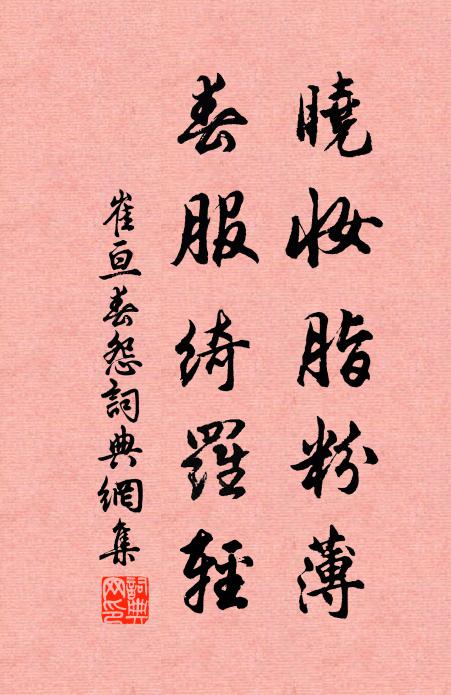 曉妝脂粉薄
春服綺羅輕
崔亘春怨詞典網集
詞典网印